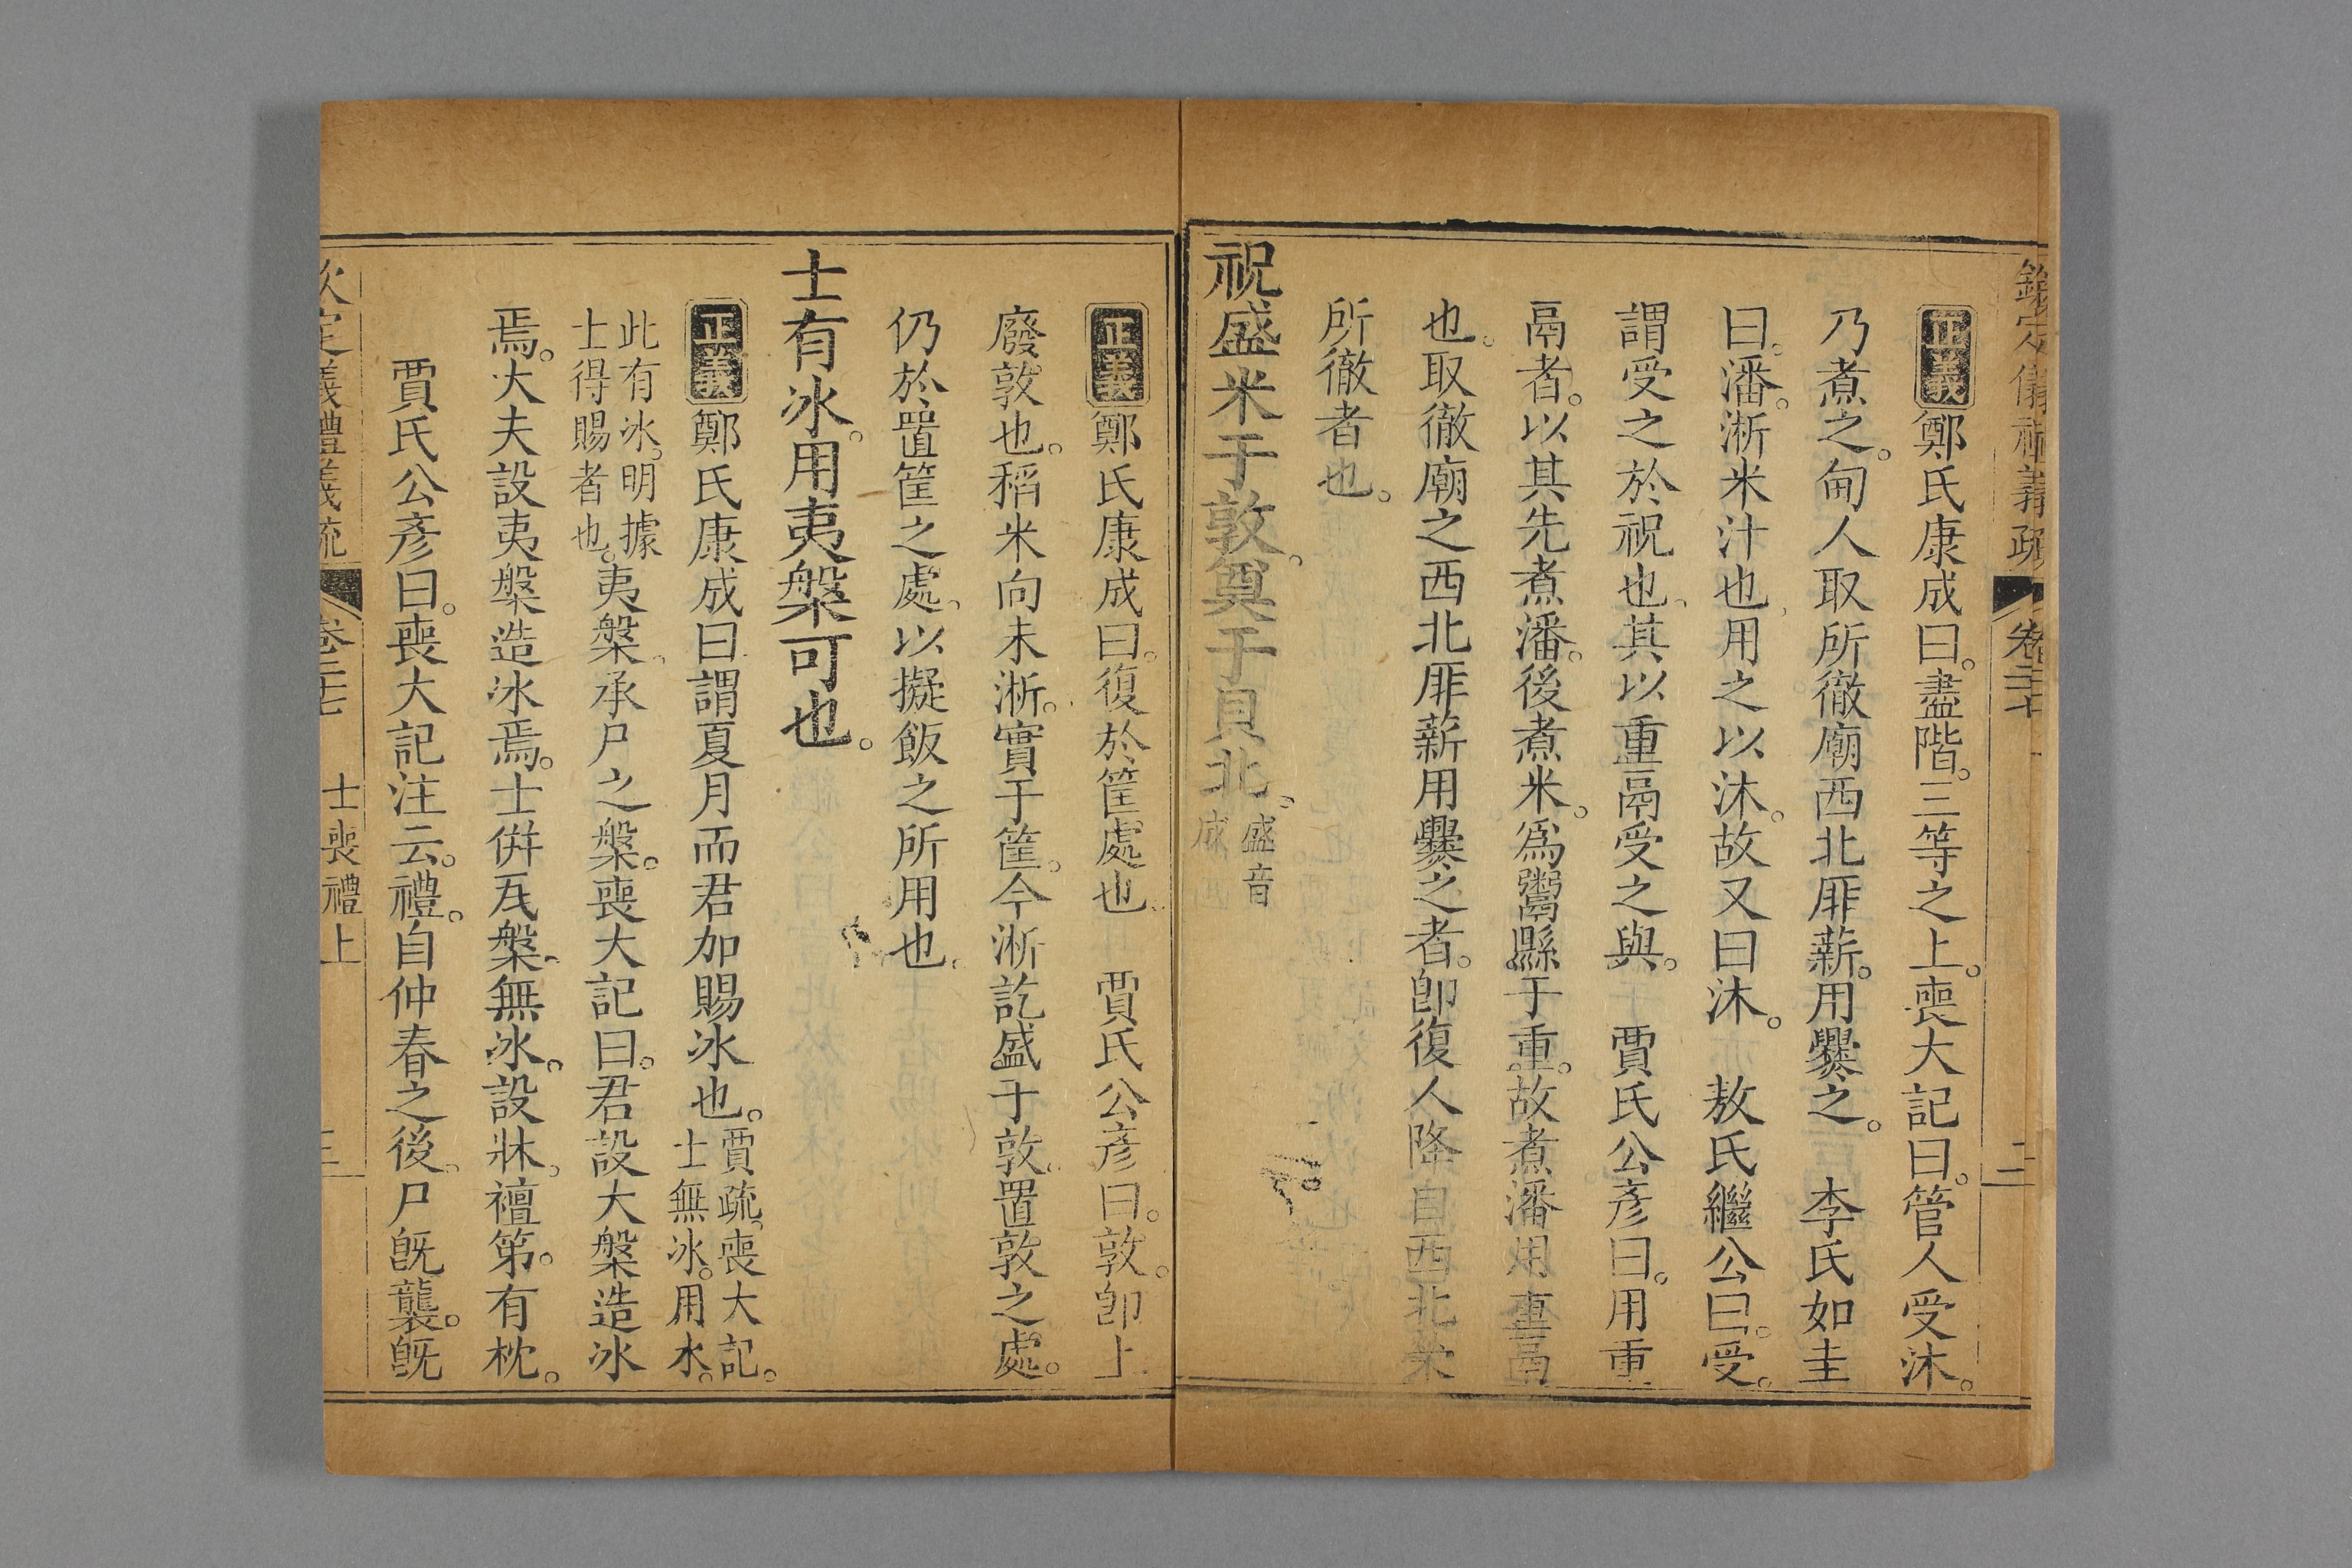 欽定儀禮義疏 卷二十七 二
正義鄭氏康成曰。盡階。三等之上。喪大記曰。管人受沐。
乃煮之。甸人取所徹廟西北厞薪。用爨之。 李氏如圭
曰。潘。淅米汁也。用之以沐。故又曰沐。 敖氏繼公曰。受。
謂受之於祝也。其以重鬲受之與。 賈氏公彥曰。用重
鬲者。以其先煮潘。後煮米。爲鬻縣于重。故煮潘用重鬲
也。取徹廟之西北厞薪用爨之者。卽復人降自西北榮
所徹者也。
祝盛米于敦。奠于貝北。盛音
成
正義鄭氏康成曰。復於筐處也。 賈氏公彥曰。敦。卽上
廢敦也。稻米向未淅。實于筐。今淅訖盛于敦。置敦之處。
仍於置筐之處。以擬飯之所用也。
士有冰。用夷槃可也。
正義鄭氏康成曰謂夏月而君加賜冰也。賈疏。喪大記。
士無冰。用水。
此有冰。明據
士得賜者也。夷槃。承尸之槃。喪大記曰。君設大槃造冰
焉。大夫設夷槃造冰焉。士併瓦槃。無冰。設牀。襢第。有枕。
賈氏公彥曰。喪大記注云。禮。自仲春之後。尸旣襲。旣
欽定義禮義疏 卷二十七 士喪禮上 三